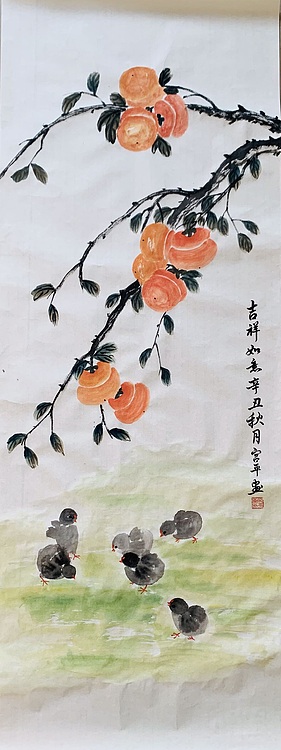 吉祥如意辛丑秋月宫平画